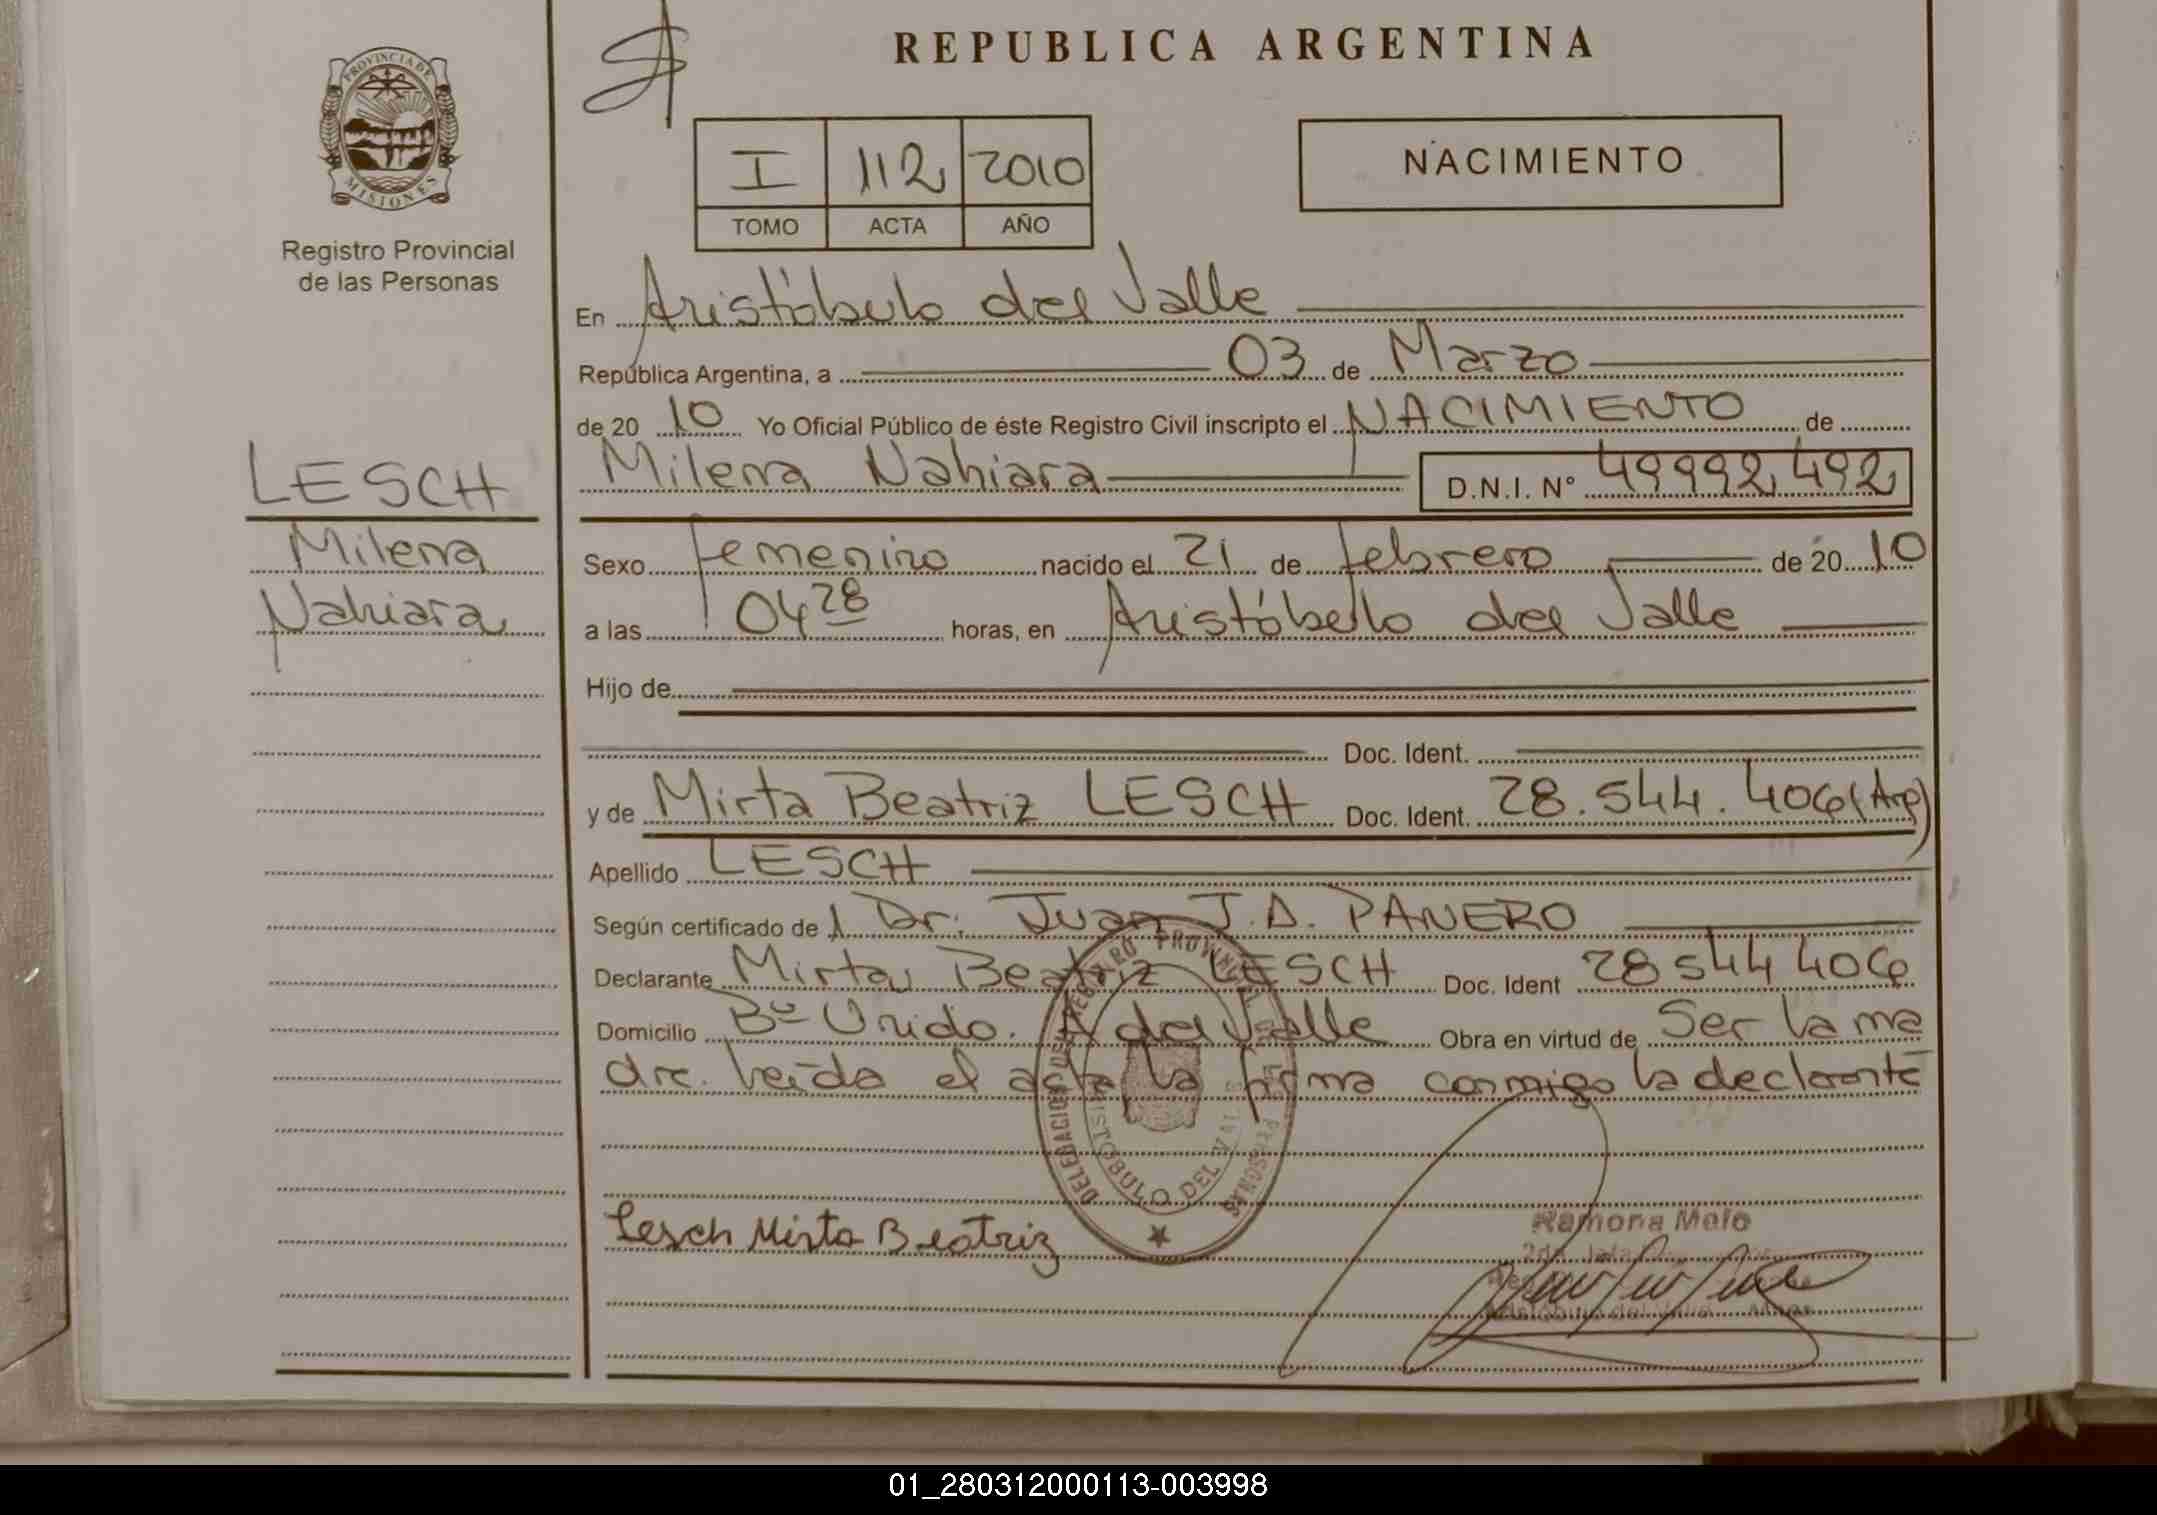 PROVINCIA DE
MISIONES
Registro Provincial
de las Personas
REPUBLICA ARGENTINA
I 112 2010
TOMO ACTA AÑO
NACIMIENTO
En Aristóbulo del Valle
República Argentina, a 03 de Marzo
de 20 10 Yo Oficial Público de éste Registro Civil inscripto el NACIMIENTO de
Milena Nahiara D.N.I. N° 49992492
LESCH
Milena
Nahiara
Sexo femenino nacido el 21 de febrero de 20 10
a las 04 28 horas, en Aristóbulo del Valle
Hijo de
Doc. Ident.
y de Mirta Beatriz LESCH Doc. Ident. 28.544.406 (Arg)
Apellido LESCH
Según certificado de Dr. Juan J.A. PANERO
Declarante Mirta Beatriz LESCH Doc. Ident 28544406
Domicilio Bº Unido. A del Valle Obra en virtud de Ser la ma
dre. leída el acta la firma conmigo la declarante
DELEGACION DEL REGISTRO PROVINCIAL DE LAS PERSONAS
ARISTOBULO DEL VALLE
Lesch Mirta Beatriz
Ramona Melo
Aristóbulo del Valle
01_280312000113-003998